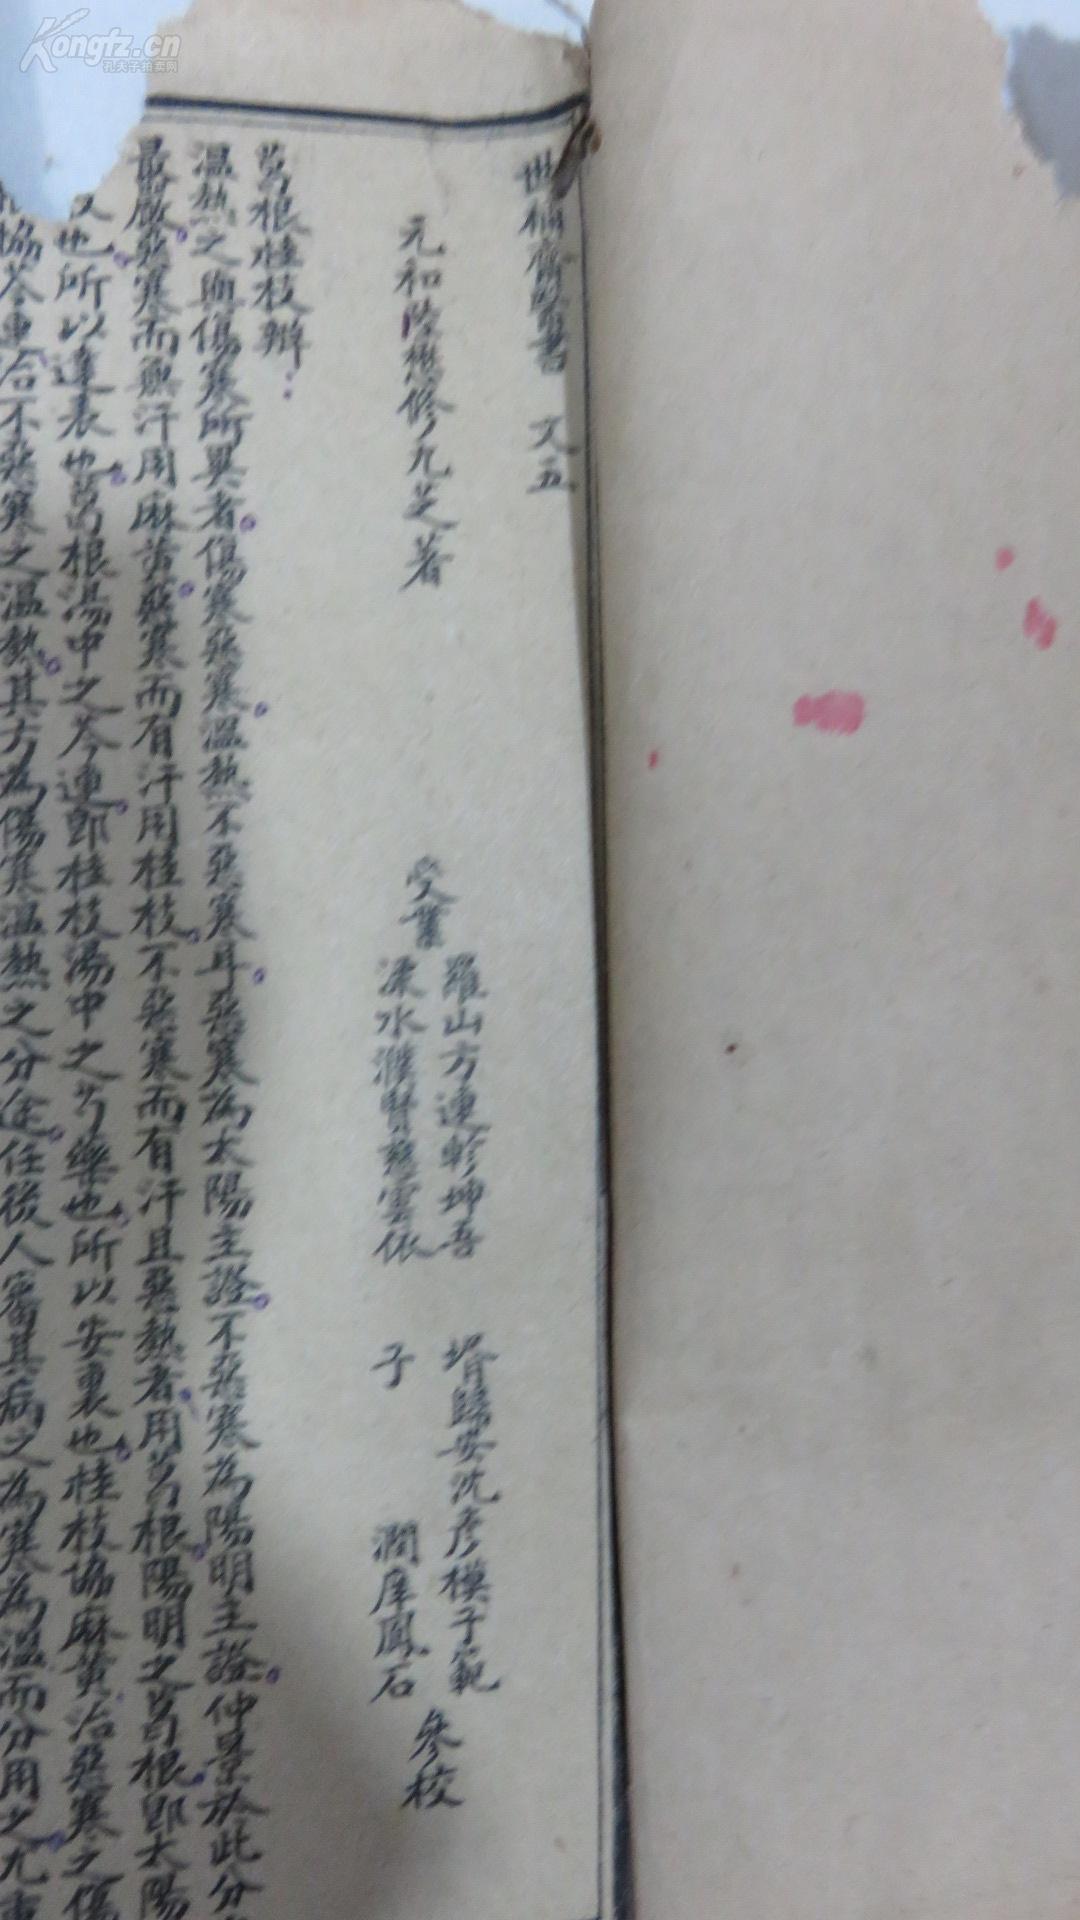 Kongfz.cn
孔夫子拍卖网
世補齋醫書　文五
元和陸懋修九芝著
受業
羅山方連軫坤吾
溧水濮賢慈雲依
壻歸安沈彥模子範
子　潤庠鳳石
參校
葛根桂枝辨
溫熱之與傷寒所異者傷寒惡寒溫熱不惡寒耳惡寒為太陽主證不惡寒為陽明主證仲景於此分
最嚴惡寒而無汗用麻黃惡寒而有汗用桂枝不惡寒而有汗且惡熱者用葛根陽明之葛根即太陽
也所以達表也葛根湯中之芩連即桂枝湯中之芍藥也所以安裏也桂枝協麻黃治惡寒之傷
協芩連治不惡寒之溫熱其方為傷寒溫熱之分途任後人審其病之為寒為溫而分用之尤重